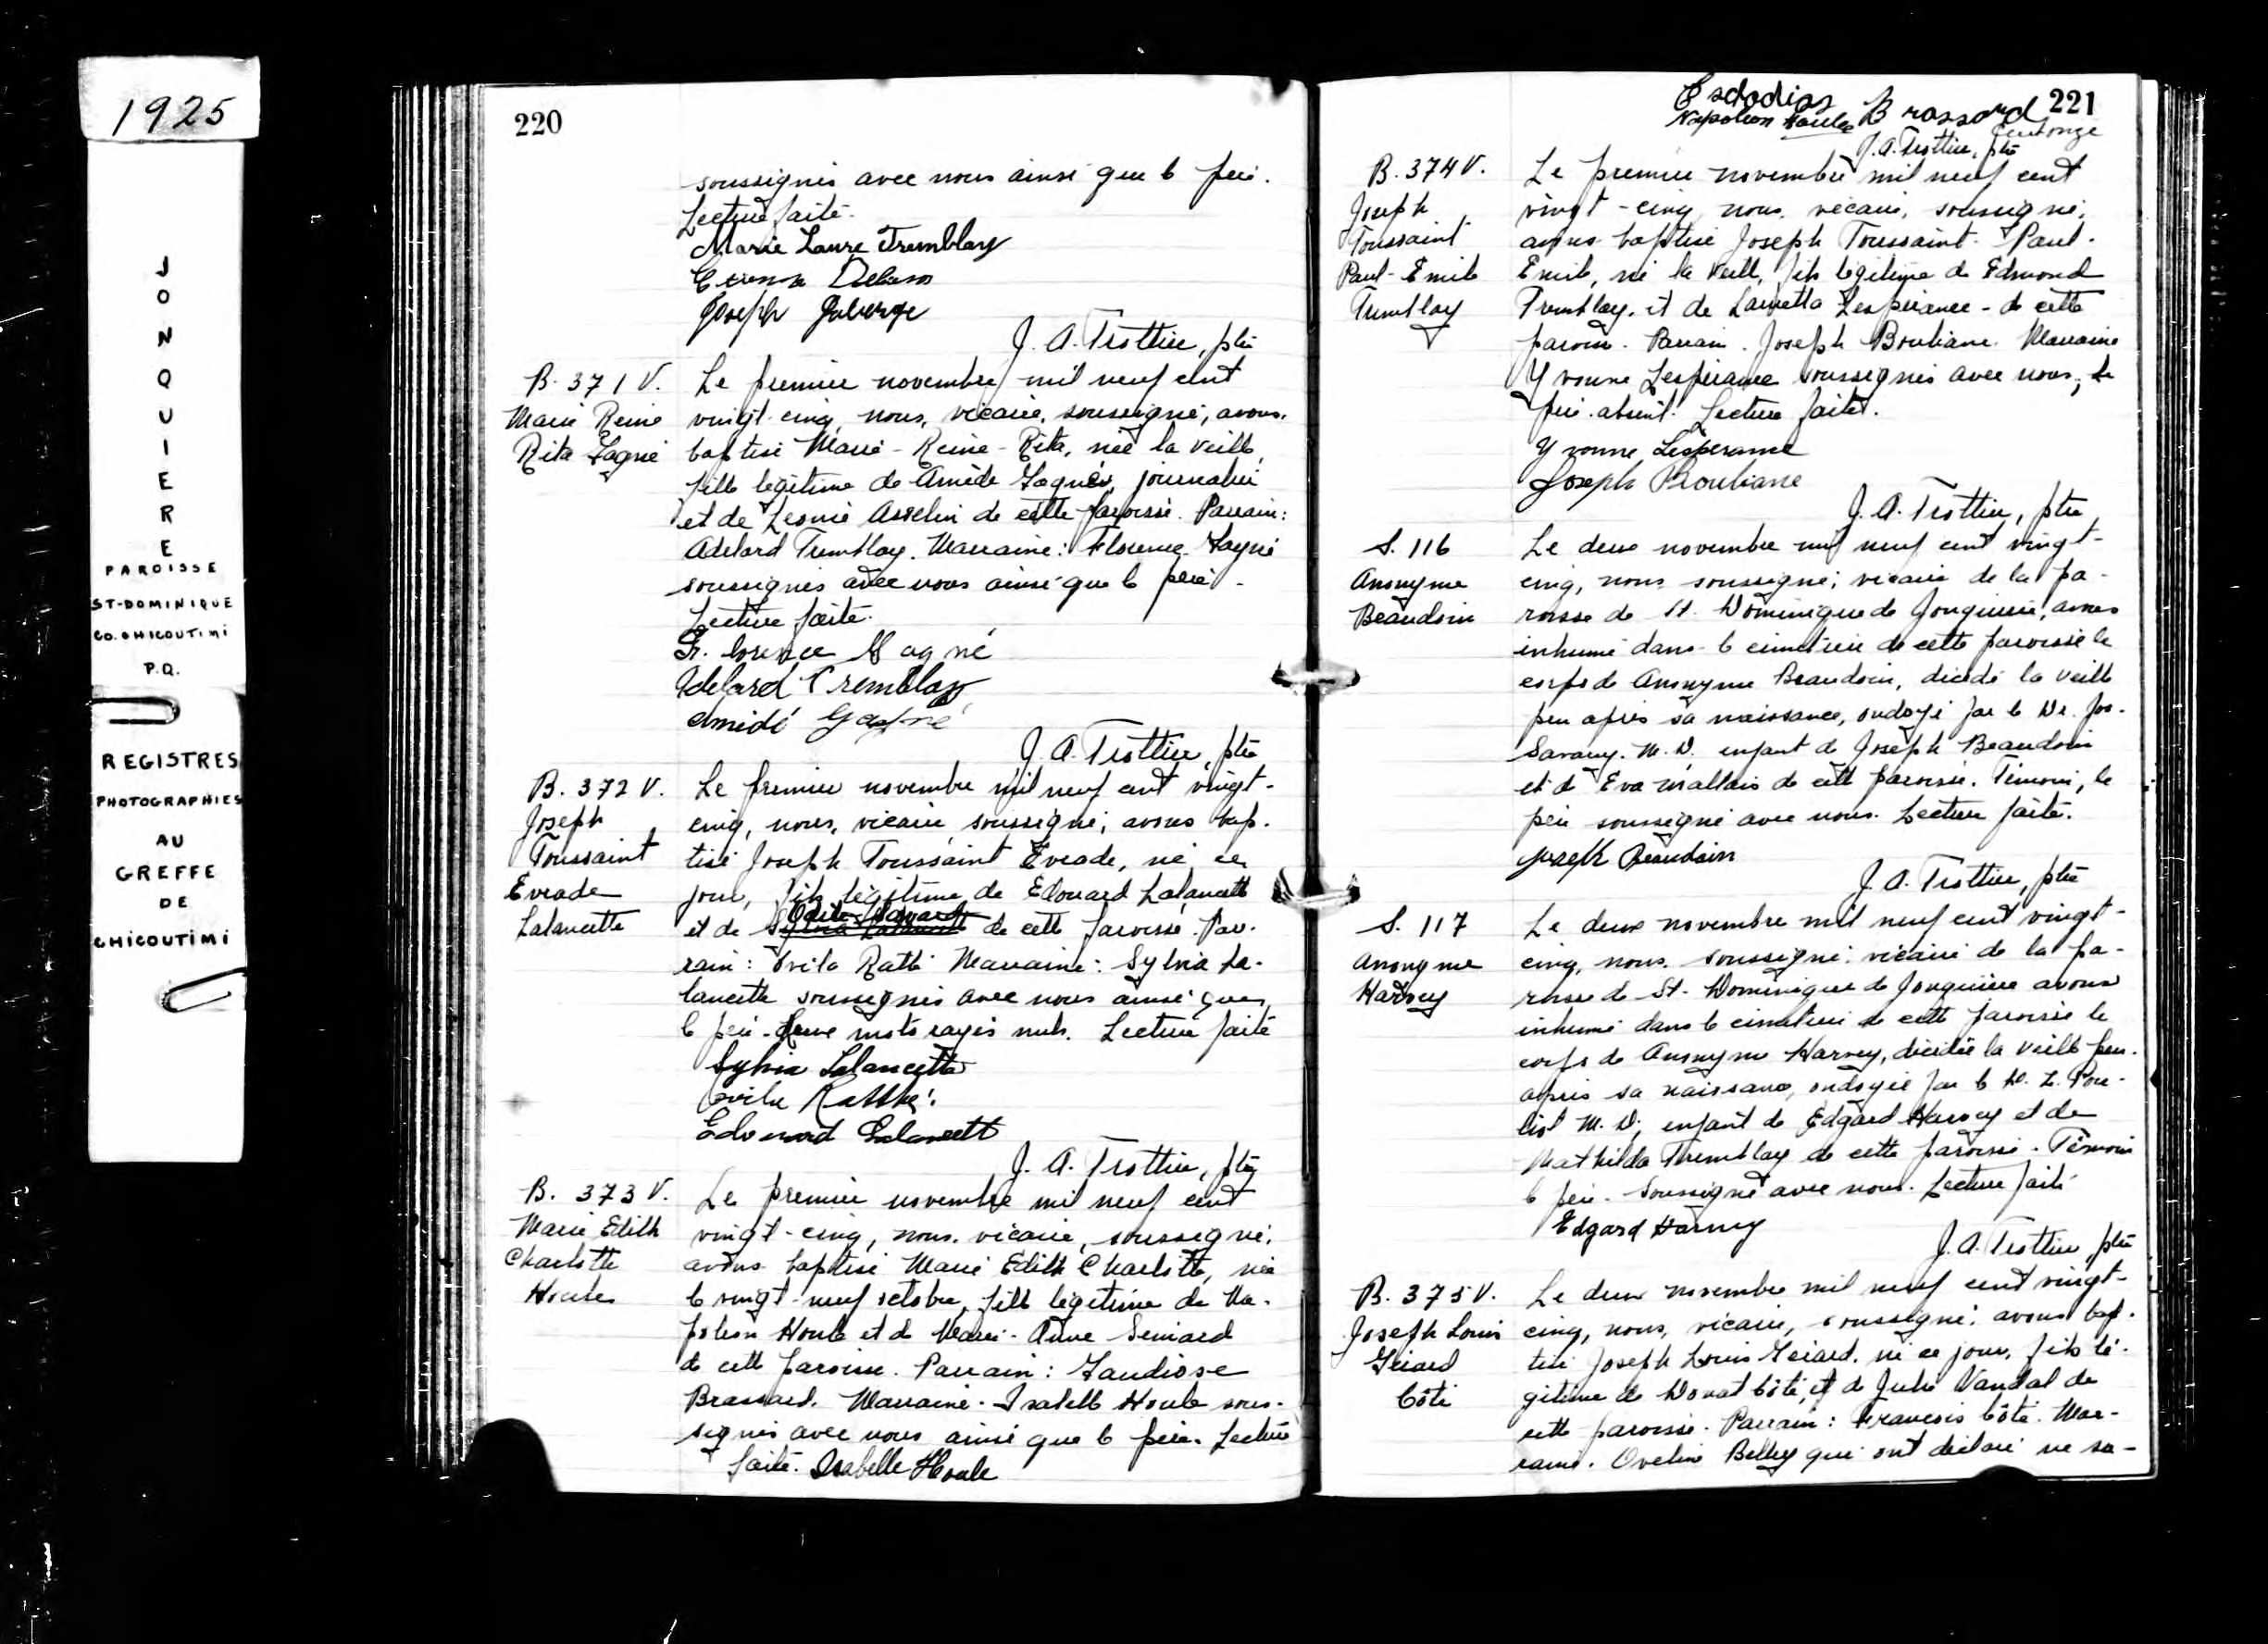 1925
JONQUIERE
PAROISSE
ST-DOMINIQUE
CO. CHICOUTIMI
P.Q.
REGISTRES
PHOTOGRAPHIES
AU
GREFFE
DE
CHICOUTIMI
220
soussignés avec nous ainsi que le père.
Lecture faite.
Marie Laure Tremblay
Joseph
J. A. Trottier, ptre
B. 371 V.
Marie Reine
Rita Gagné
Le premier novembre mil neuf cent
vingt-cinq, nous, vicaire, soussigné, avons
baptisé Marie-Reine-Rita, née la veille,
fille légitime de Amédé Gagné, journalier
et de Léonie Asselin de cette paroisse. Parrain:
Adélard Tremblay. Marraine: Florence Gagné
soussignés avec nous ainsi que le père.
Lecture faite.
Florence Gagné
Adelard Tremblay
Amédé Gagné
J. A. Trottier, ptre
B. 372 V.
Joseph
Toussaint
Evrade
Lalancette
Le premier novembre mil neuf cent vingt-
cinq, nous, vicaire soussigné, avons bap-
tisé Joseph Toussaint Evrade, né ce
jour, fils légitime de Edouard Lalancette
Odile Savard
et de Sylvia Lalancette de cette paroisse. Par-
rain: Ovila Rathé Marraine: Sylvia La-
lancette soussignés avec nous ainsi que
le père. Deux mots rayés nuls. Lecture faite
Sylvia Lalancette
Ovila Rathé.
Edouard Lalancette
J. A. Trottier, ptre
B. 373 V.
Marie Edith
Charlotte
Houle
Le premier novembre mil neuf cent
vingt-cinq, nous, vicaire, soussigné,
avons baptisé Marie Edith Charlotte, née
le vingt-neuf octobre, fille légitime de Na-
poléon Houle et de Marie-Anne
de cette paroisse. Parrain: Gaudiose
Brassard. Marraine. Isabelle Houle sous-
signés avec nous ainsi que le père. Lecture
faite. Isabelle Houle
221
Brassard
Napoleon Houle
J. A. Trottier, ptre
B. 374 V.
Joseph
Toussaint
Paul-Emile
Tremblay
Le premier novembre mil neuf cent
vingt-cinq, nous, vicaire, soussigné,
avons baptisé Joseph Toussaint Paul-
Emile, né la veille, fils légitime de Edmond
Tremblay et de Lauretta Lespérance - de cette
paroisse. Parrain. Joseph Bouliane. Marraine
Yvonne Lespérance soussignés avec nous, le
père absent. Lecture faite.
Yvonne Lesperance
Joseph Bouliane
J. A. Trottier, ptre
S. 116
Anonyme
Beaudoin
Le deux novembre mil neuf cent vingt-
cinq, nous soussigné, vicaire de la pa-
roisse de St. Dominique de Jonquière, avons
inhumé dans le cimetière de cette paroisse le
corps de Anonyme Beaudoin, décédé la veille
peu après sa naissance, ondoyé par le Dr. Jos.
Savary. M. D. enfant de Joseph Beaudoin
et de Eva Mallais de cette paroisse. Témoin, le
père soussigné avec nous. Lecture faite.
Joseph Beaudoin
J. A. Trottier, ptre
S. 117
Anonyme
Harvey
Le deux novembre mil neuf cent vingt-
cinq, nous soussigné, vicaire de la pa-
roisse de St-Dominique de Jonquière avons
inhumé dans le cimetière de cette paroisse le
corps de Anonyme Harvey, décédée la veille peu
après sa naissance, ondoyée par le D. L. Pou-
liot M. D., enfant de Edgard Harvey et de
Mathilda Tremblay de cette paroisse. Témoin
le père. Soussigné avec nous. Lecture faite
Edgard Harvey
J. A. Trottier, ptre
B. 375 V.
Joseph Louis
Gérard
Côté
Le deux novembre mil neuf cent vingt-
cinq, nous, vicaire, soussigné, avons bap-
tisé Joseph Louis Gérard, né ce jour, fils lé-
gitime de Donat Côté, et de Julie Vandal de
cette paroisse. Parrain: François Côté. Mar-
raine. Oveline Belley qui ont déclaré ne sa-